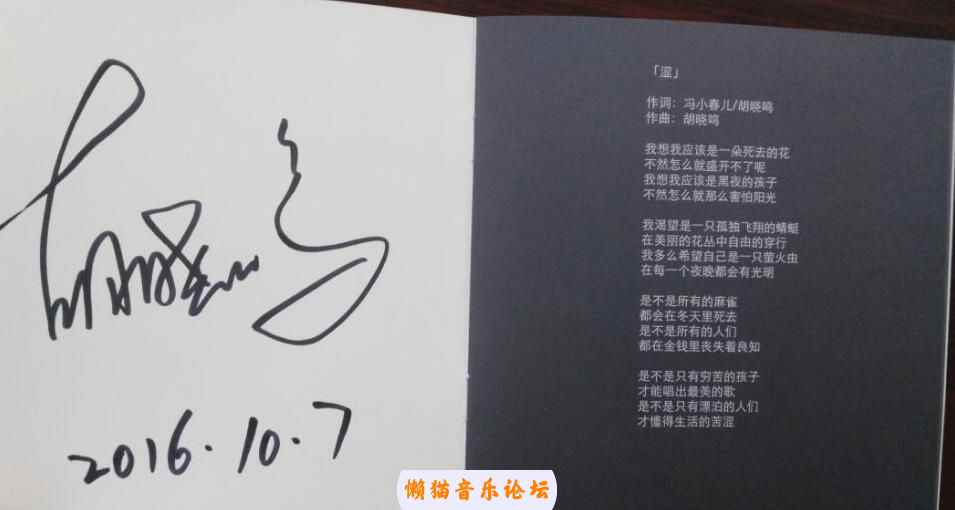 胡晓鸣
2016.10.7
「涩」
作词：冯小春儿/胡晓鸣
作曲：胡晓鸣
我想我应该是一朵死去的花
不然怎么就盛开不了呢
我想我应该是黑夜的孩子
不然怎么就那么害怕阳光
我渴望是一只孤独飞翔的蜻蜓
在美丽的花丛中自由的穿行
我多么希望自己是一只萤火虫
在每一个夜晚都会有光明
是不是所有的麻雀
都会在冬天里死去
是不是所有的人们
都在金钱里丧失着良知
是不是只有穷苦的孩子
才能唱出最美的歌
是不是只有漂泊的人们
才懂得生活的苦涩
懒猫音乐论坛